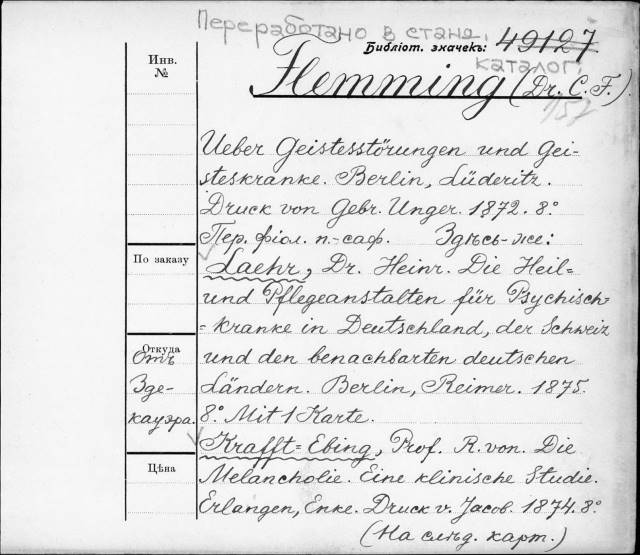 Переработано в станд.
каталог.
Библіот. значекъ: 49127
Инв.
№
Flemming (Dr. C. F.)
Ueber Geistesstörungen und Gei-
steskranke. Berlin, Lüderitz.
Druck von Gebr. Unger. 1872. 8º
Пер. фіол. п.-саф. Здѣсь-же:
По заказу
Laehr, Dr. Heinr. Die Heil=
und Pflegeanstalten für Psychisch-
=kranke in Deutschland, der Schweiz
Откуда
Отъ
und den benachbarten deutschen
Зде-
Ländern. Berlin, Reimer. 1875.
кауэра.
8º Mit 1 Karte.
Krafft=Ebing, Prof. R. von. Die
Цѣна
Melancholie. Eine klinische Studie.
Erlangen, Enke. Druck v. Jacob. 1874. 8º
(На слѣд. карт.)